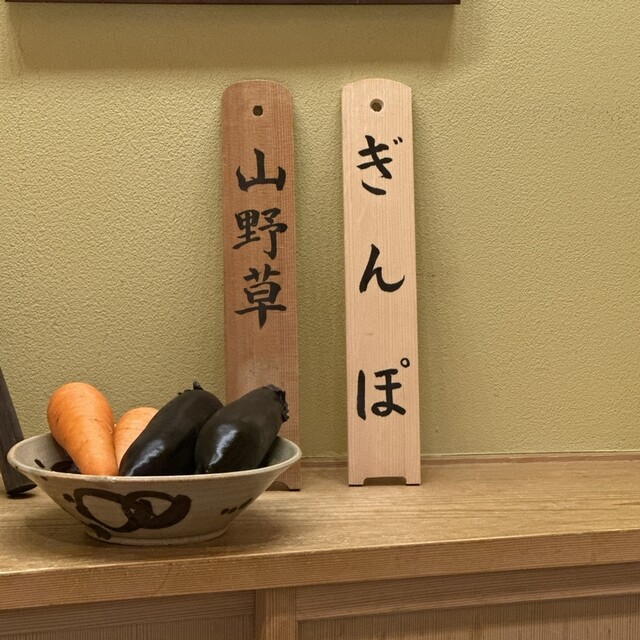 ぎんぽ
山野草